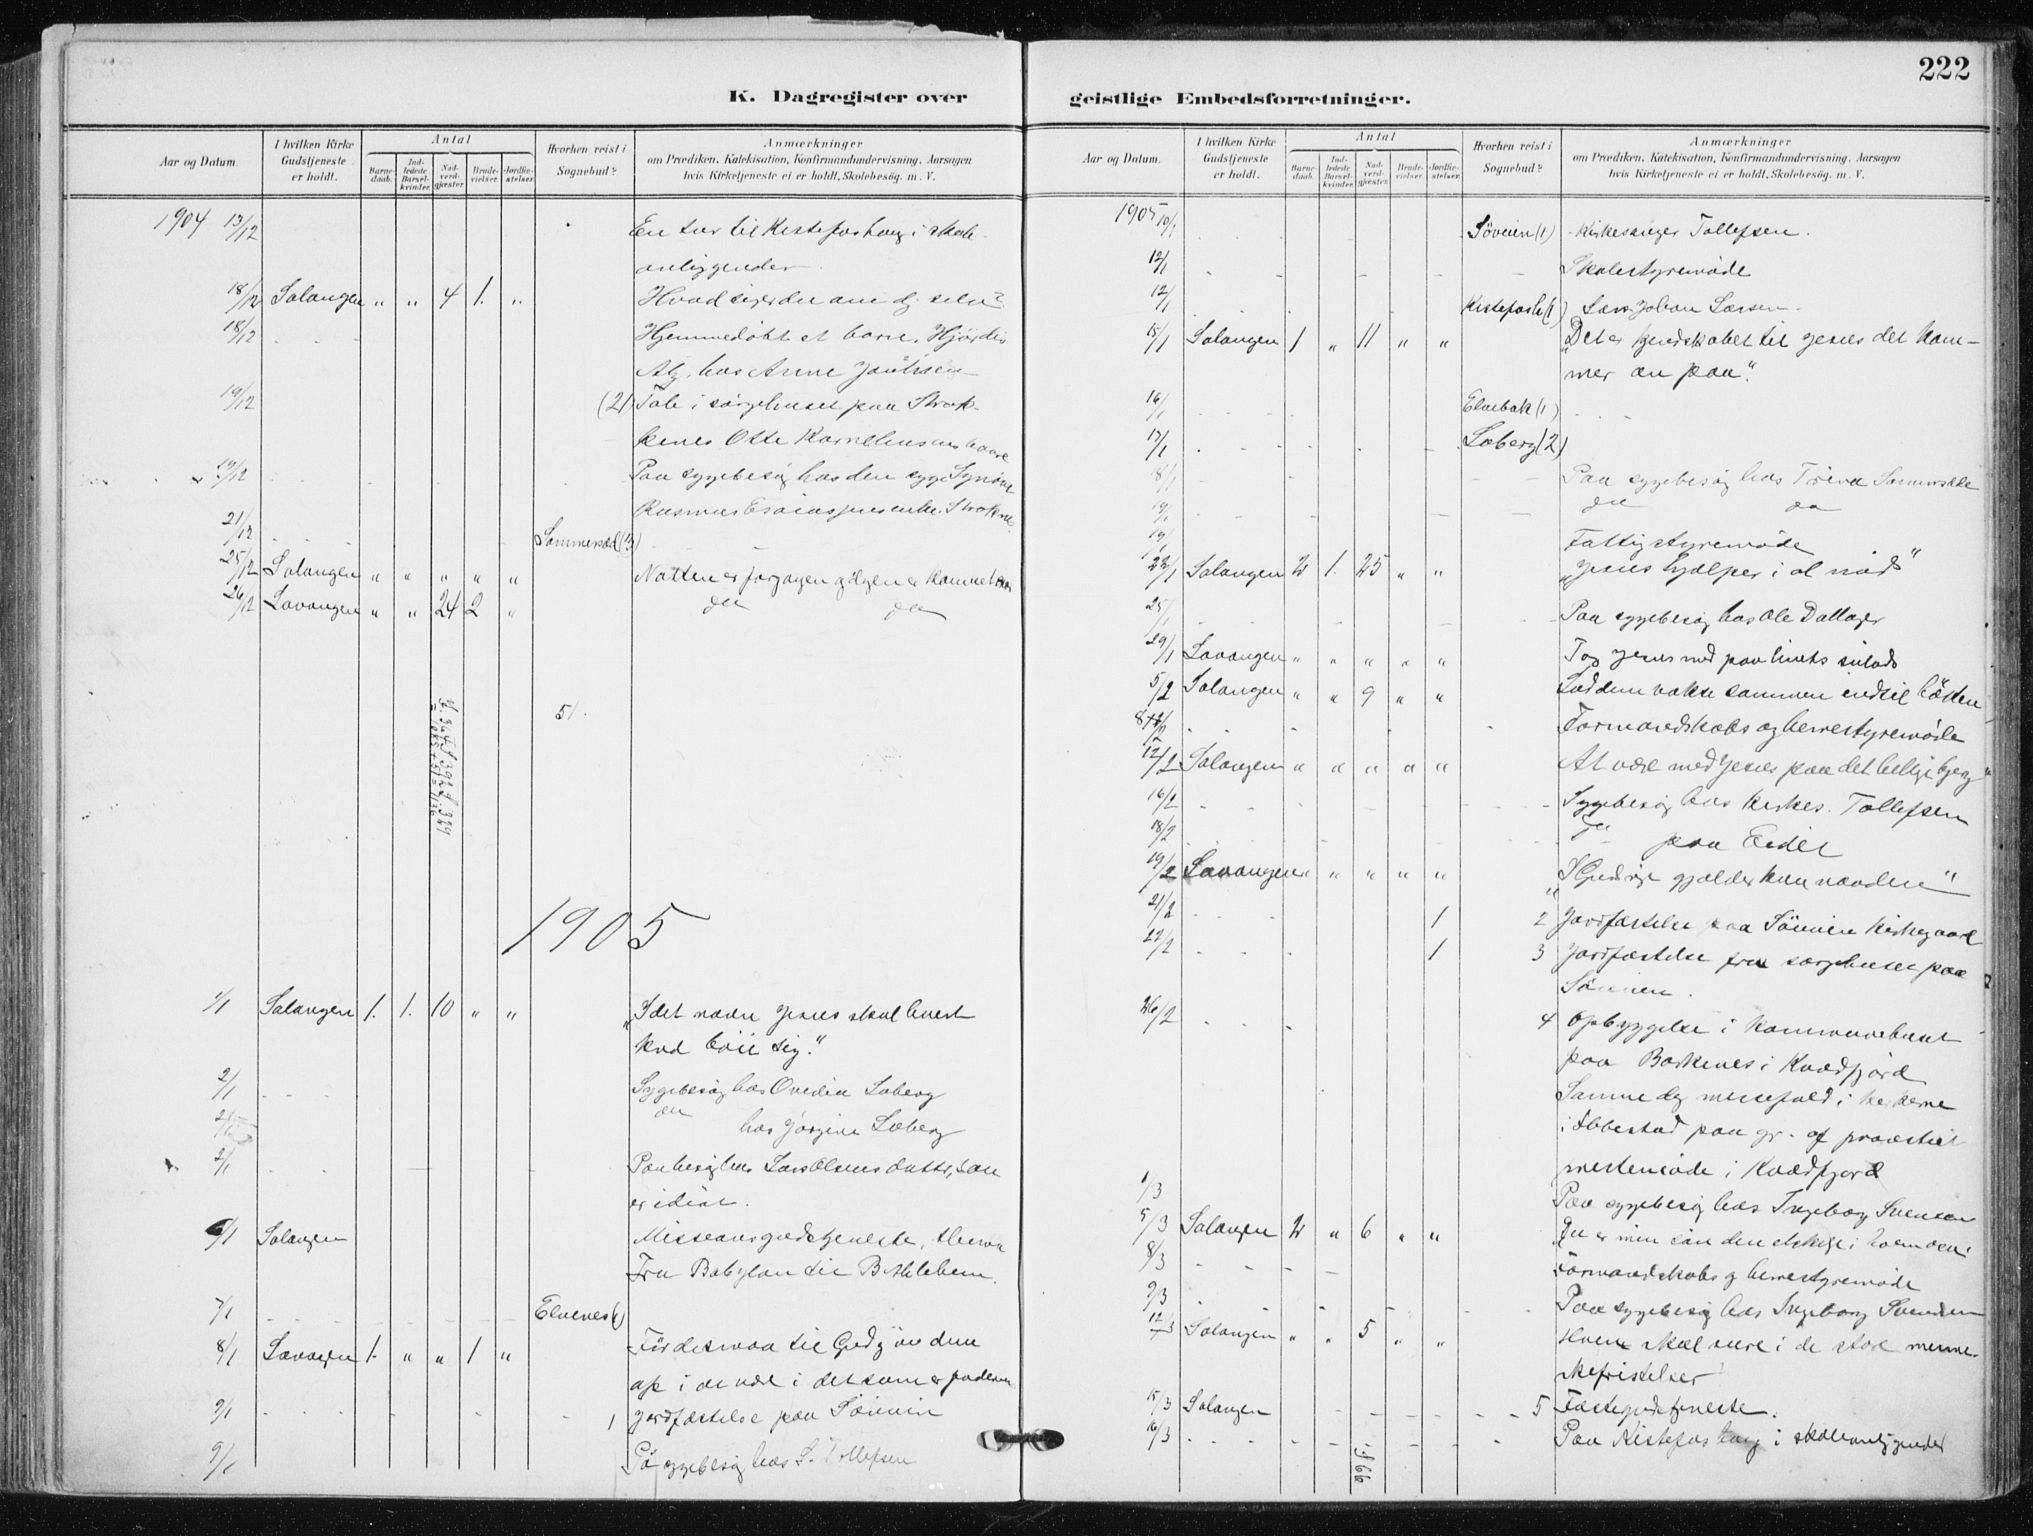 222
K. Dagregister over
geistlige Embedsforretninger.
Aar og Datum.
I hvilken Kirke Gudstjeneste er holdt.
Antal
Barnedaab.
Indledede Barselkvinder.
Nadverdgjester.
Brudevielser.
Jordfæstelser.
Hvorhen reist i Sognebud?
Anmærkninger
om Prædiken, Katekisation, Konfirmandundervisning, Aarsagen
hvis Kirketjeneste ei er holdt, Skolebesög. m. V.
1904 13/12 En tur til Kistefoshaug i skole-
anliggender
18/12 Salangen " " 4 1. " Hvad siger du om dig selv?
18/12 Hjemmedøbt et barn, Hjørdis
hos Arne
19/12 (2) Tale i sørgehuset paa
Otte
19/12 Paa sygebesøg hos den syge
Rasmus
21/12 Sommersæd (3)
25/12 Salangen " " " " " Natten er forgangen dagen er kommet
26/12 Lavangen " " 24 2 " do do
51.
1905
1/1 Salangen 1. 1. 10 " " "I det navn Jesus skal hvert
knæ bøie sig."
2/1 Sygebesøg hos Ovedia Løberg
2/1 do hos Jørgine Løberg
2/1 Paa besøg hos Lars Olsens datter, som
er idiot.
6/1 Salangen Missionsgudstjeneste,
Fra Babylon til Bethlehem.
7/1 Elvenes (1)
8/1 Lavangen 1. " " 1 "
op i at være i det som er
9/1 1 Jordfæstelse paa Søveien
9/1 På sygebesøg hos L. Tollefsen
Aar og Datum.
I hvilken Kirke Gudstjeneste er holdt.
Antal
Barnedaab.
Indledede Barselkvinder.
Nadverdgjester.
Brudevielser.
Jordfæstelser.
Hvorhen reist i Sognebud?
Anmærkninger
om Prædiken, Katekisation, Konfirmandundervisning, Aarsagen
hvis Kirketjeneste ei er holdt, Skolebesög. m. V.
1905 10/1 Søveien (1) Kirkesanger Tollefsen.
12/1 Skolestyremøde
12/1 Kistefosh (1) Lars Johan Larsen.
15/1 Salangen 1 " 11 " " "Det er kjendskabet til Jesus det kom-
mer an paa."
16/1 Elvebak (1)
17/1 Løberg (2)
18/1 Paa sygebesøg hos
19/1 do do
19/1 Fattigstyremøde
22/1 Salangen 2 1. 25 " " "Jesus hjælper i al nød"
25/1 Paa sygebesøg hos Ole Dallager
29/1 Lavangen " " " " " Tag Jesus med paa livets
5/2 Salangen " " 9 " " Lad dem vokse sammen indtil høsten
Formandskabs og herredstyremøde
12/2 Salangen " " " " " At være med Jesus paa det hellige bjerg"
16/2 Sygebesøg hos kirkes. Tollefsen
18/2 paa Eidet
19/2 Lavangen " " " " " "I Guds rige gjælder kun naaden"
21/2 1 2 Jordfæstelse paa Søveien kirkegaard
22/2 1 3 Jordfæstelse fra sørgehuset paa
Søveien.
26/2 4 Opbyggelse i kommunehuset
paa Borkenes i Kvædfjord
Samme dag messefald i kirkerne
i Ibbestad paa gr. af
i Kvædfjord
1/3 Paa sygebesøg hos Ingeborg Svensen
5/3 Salangen 2 " 6 " " Du er min søn den elskelige i
8/3 Formandskabs og herredstyremøde
9/3 Paa sygebesøg hos Ingeborg Svendsen
12/3 Salangen " " 5 " " Hvem skal seire i de store menne-
skefristelser
15/3 Salangen 5 Fastegudstjeneste.
16/3 Paa Kistefoshaug i skoleanliggender
S. 66